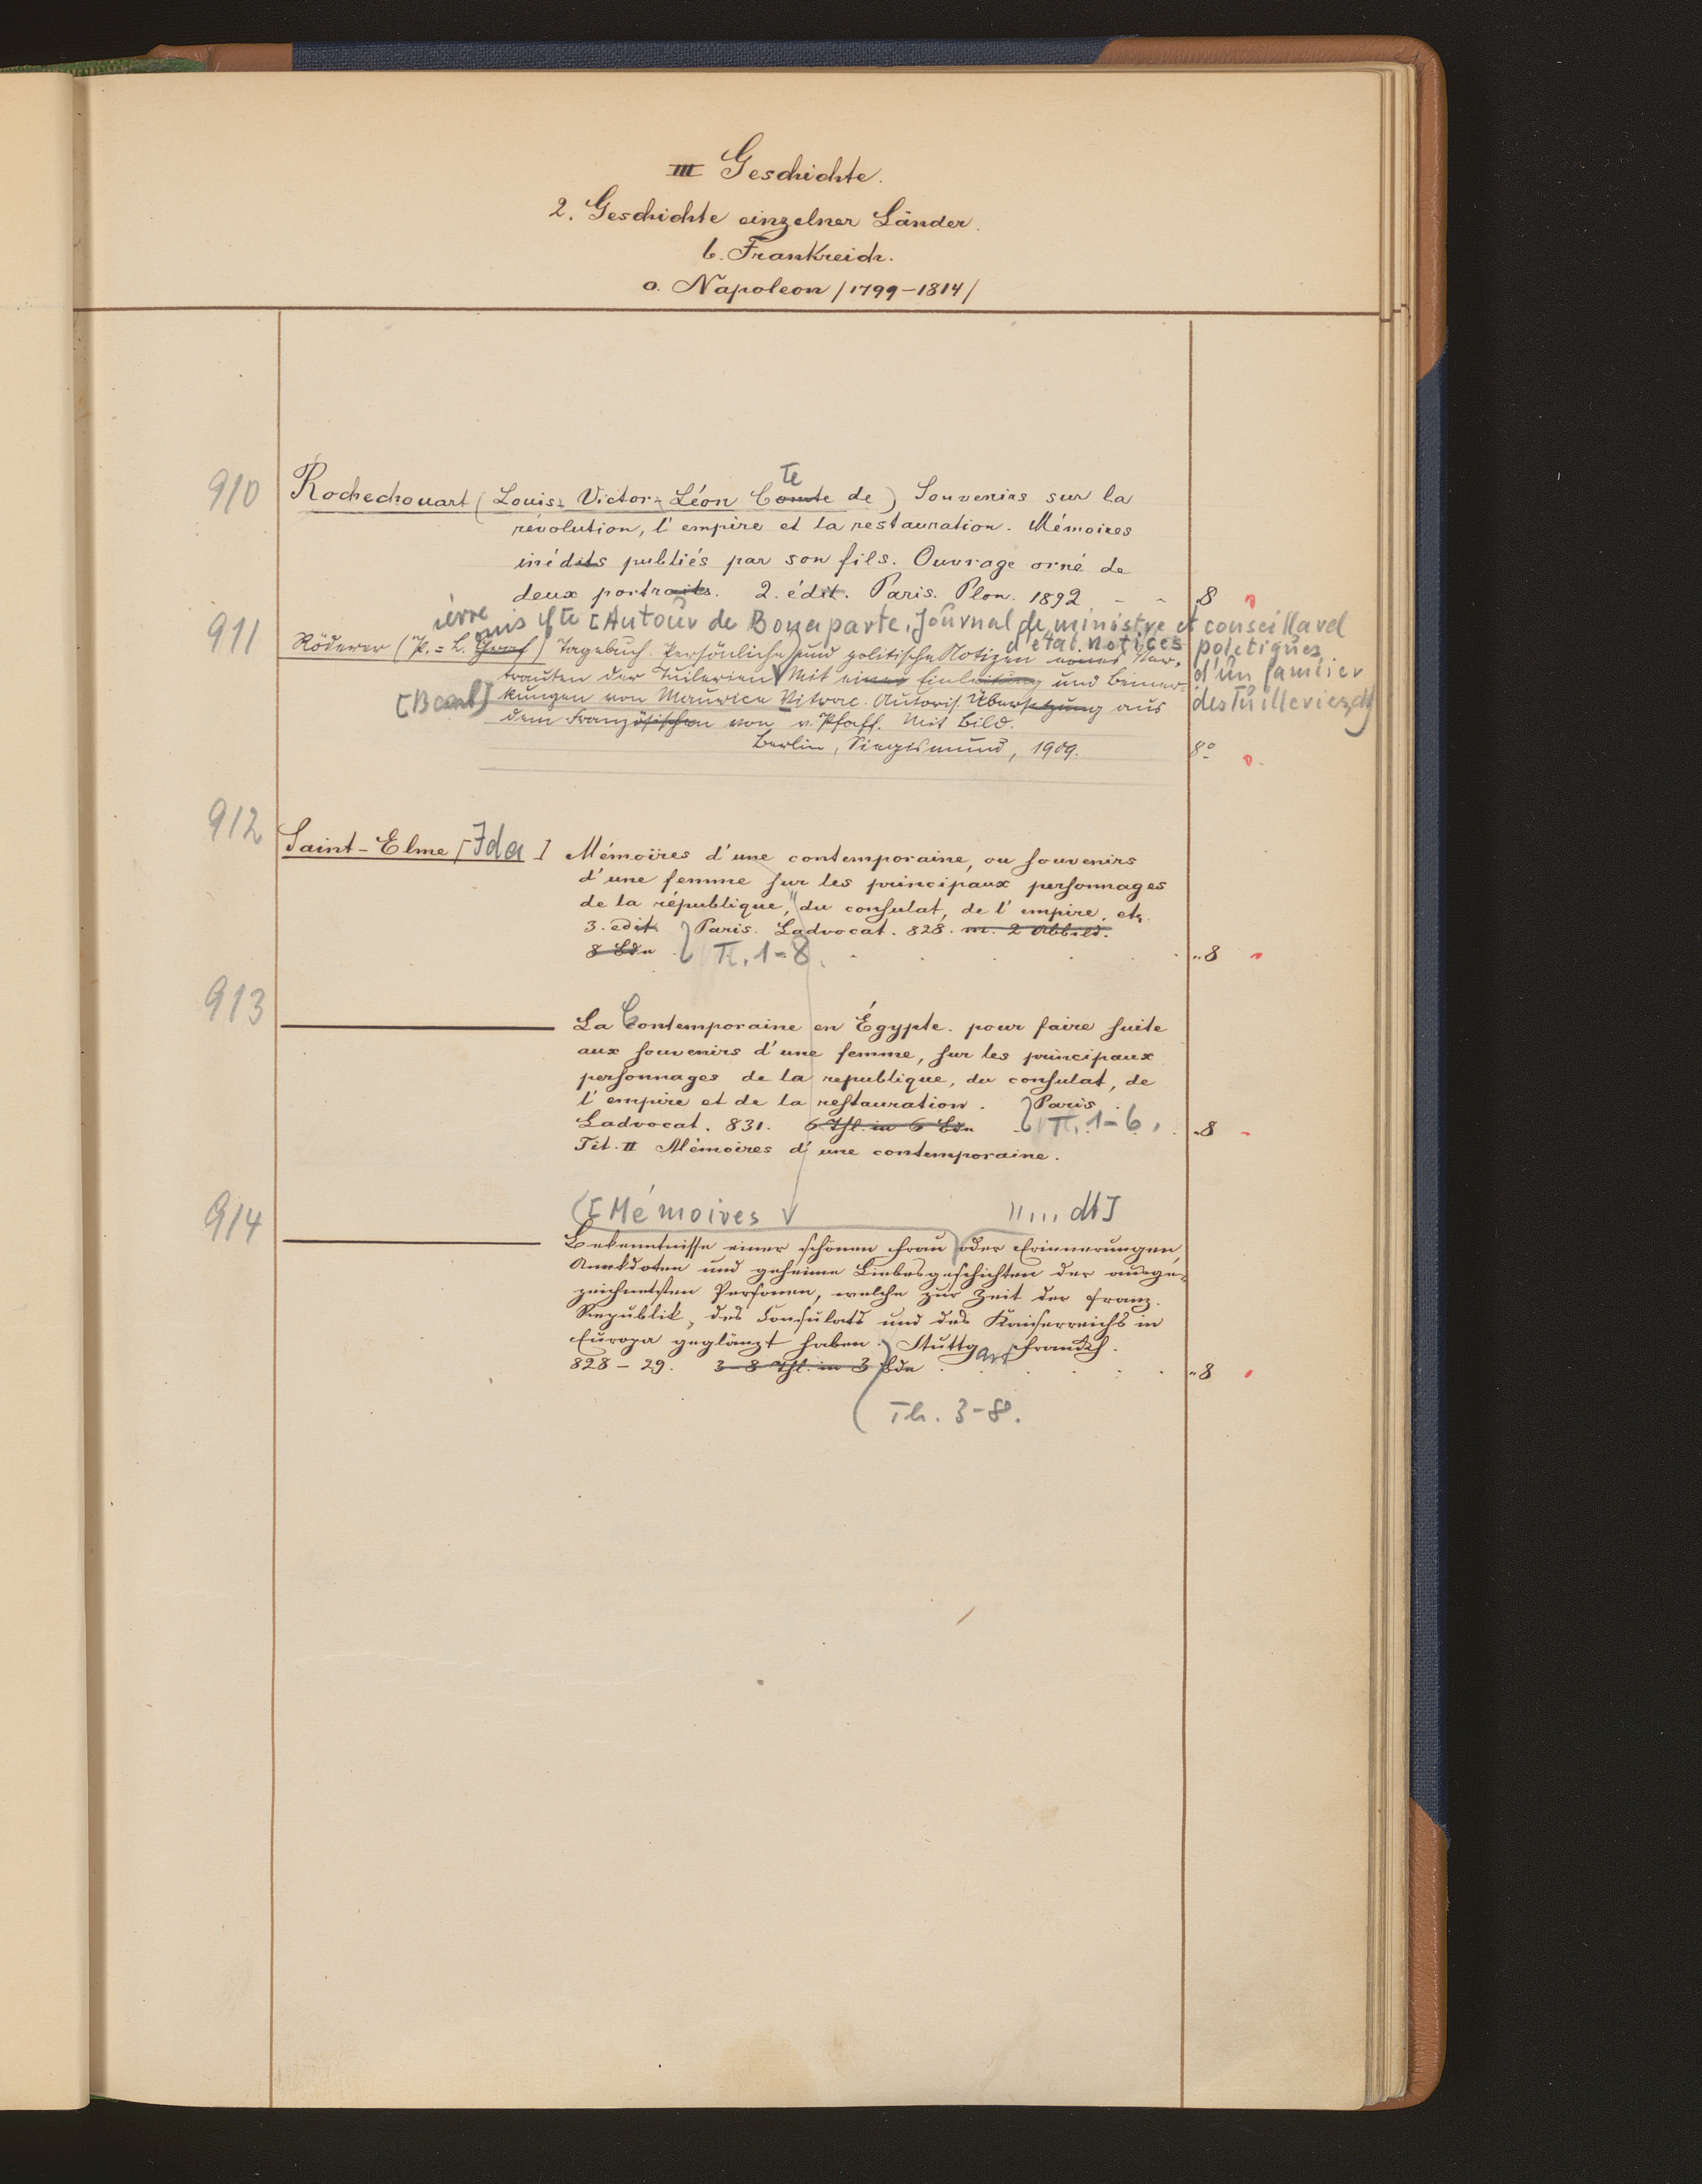 III Geschichte.
2. Geschichte einzelner Länder.
b. Frankreich.
a. Napoleon /1799-1814/
Te
910 Rochechouart (Louis-Victor-Léon Comte de) Souvenirs sur la
révolution, l'empire et la restauration. Mémoires
inédits publiés par son fils. Ouvrage orné de
deux portraits. 2. édit. Paris. Plon. 1892 - - 8
ierre
ouis Cte [Autour de Bonaparte, Journal du ministre et conseillard
911 d'état notices politiques
Röderer (P.=L. Graf) Tagebuch. Persönliche und politische Notizen eines Ver-
d'un familier
trauten der Tuilerien Mit einer Einleitung und Bemer-
[Bearb] kungen von Maurice Vitrac. Autoris. Übersetzung aus des Tuilleries, dt]
dem Französischen von v. Pfaff. Mit Bild.
Berlin, Siegismund, 1909. 8°
912 Saint-Elme [Ida] Mémoires d'une contemporaine, ou souvenirs
d'une femme sur les principaux personnages
de la république, du consulat, de l'empire, etc.
3. edit. Paris. Ladvocat. 828. m. 2 Abbild.
8 Bdn T. 1-8. 8
913 La Contemporaine en Égypte. pour faire suite
aux souvenirs d'une femme, sur les principaux
personnages de la republique, du consulat, de
l'empire et de la restauration. Paris
Ladvocat. 831. 6 Thl. in 6 Bdn T. 1-6. 8
Tit. II Mémoires d'une contemporaine.
914 [Mémoires " ... dt]
Bekenntnisse einer schönen Frau oder Erinnerungen,
Anekdoten und geheime Liebesgeschichten der ausge-
zeichnetsten Personen, welche zur Zeit der franz.
Republik, des Consulats und des Kaiserreichs in
Europa geglänzt haben. Stuttgart Franckh.
828-29. 3-8 Thl. in 3 Bdn 8
Th. 3-8.